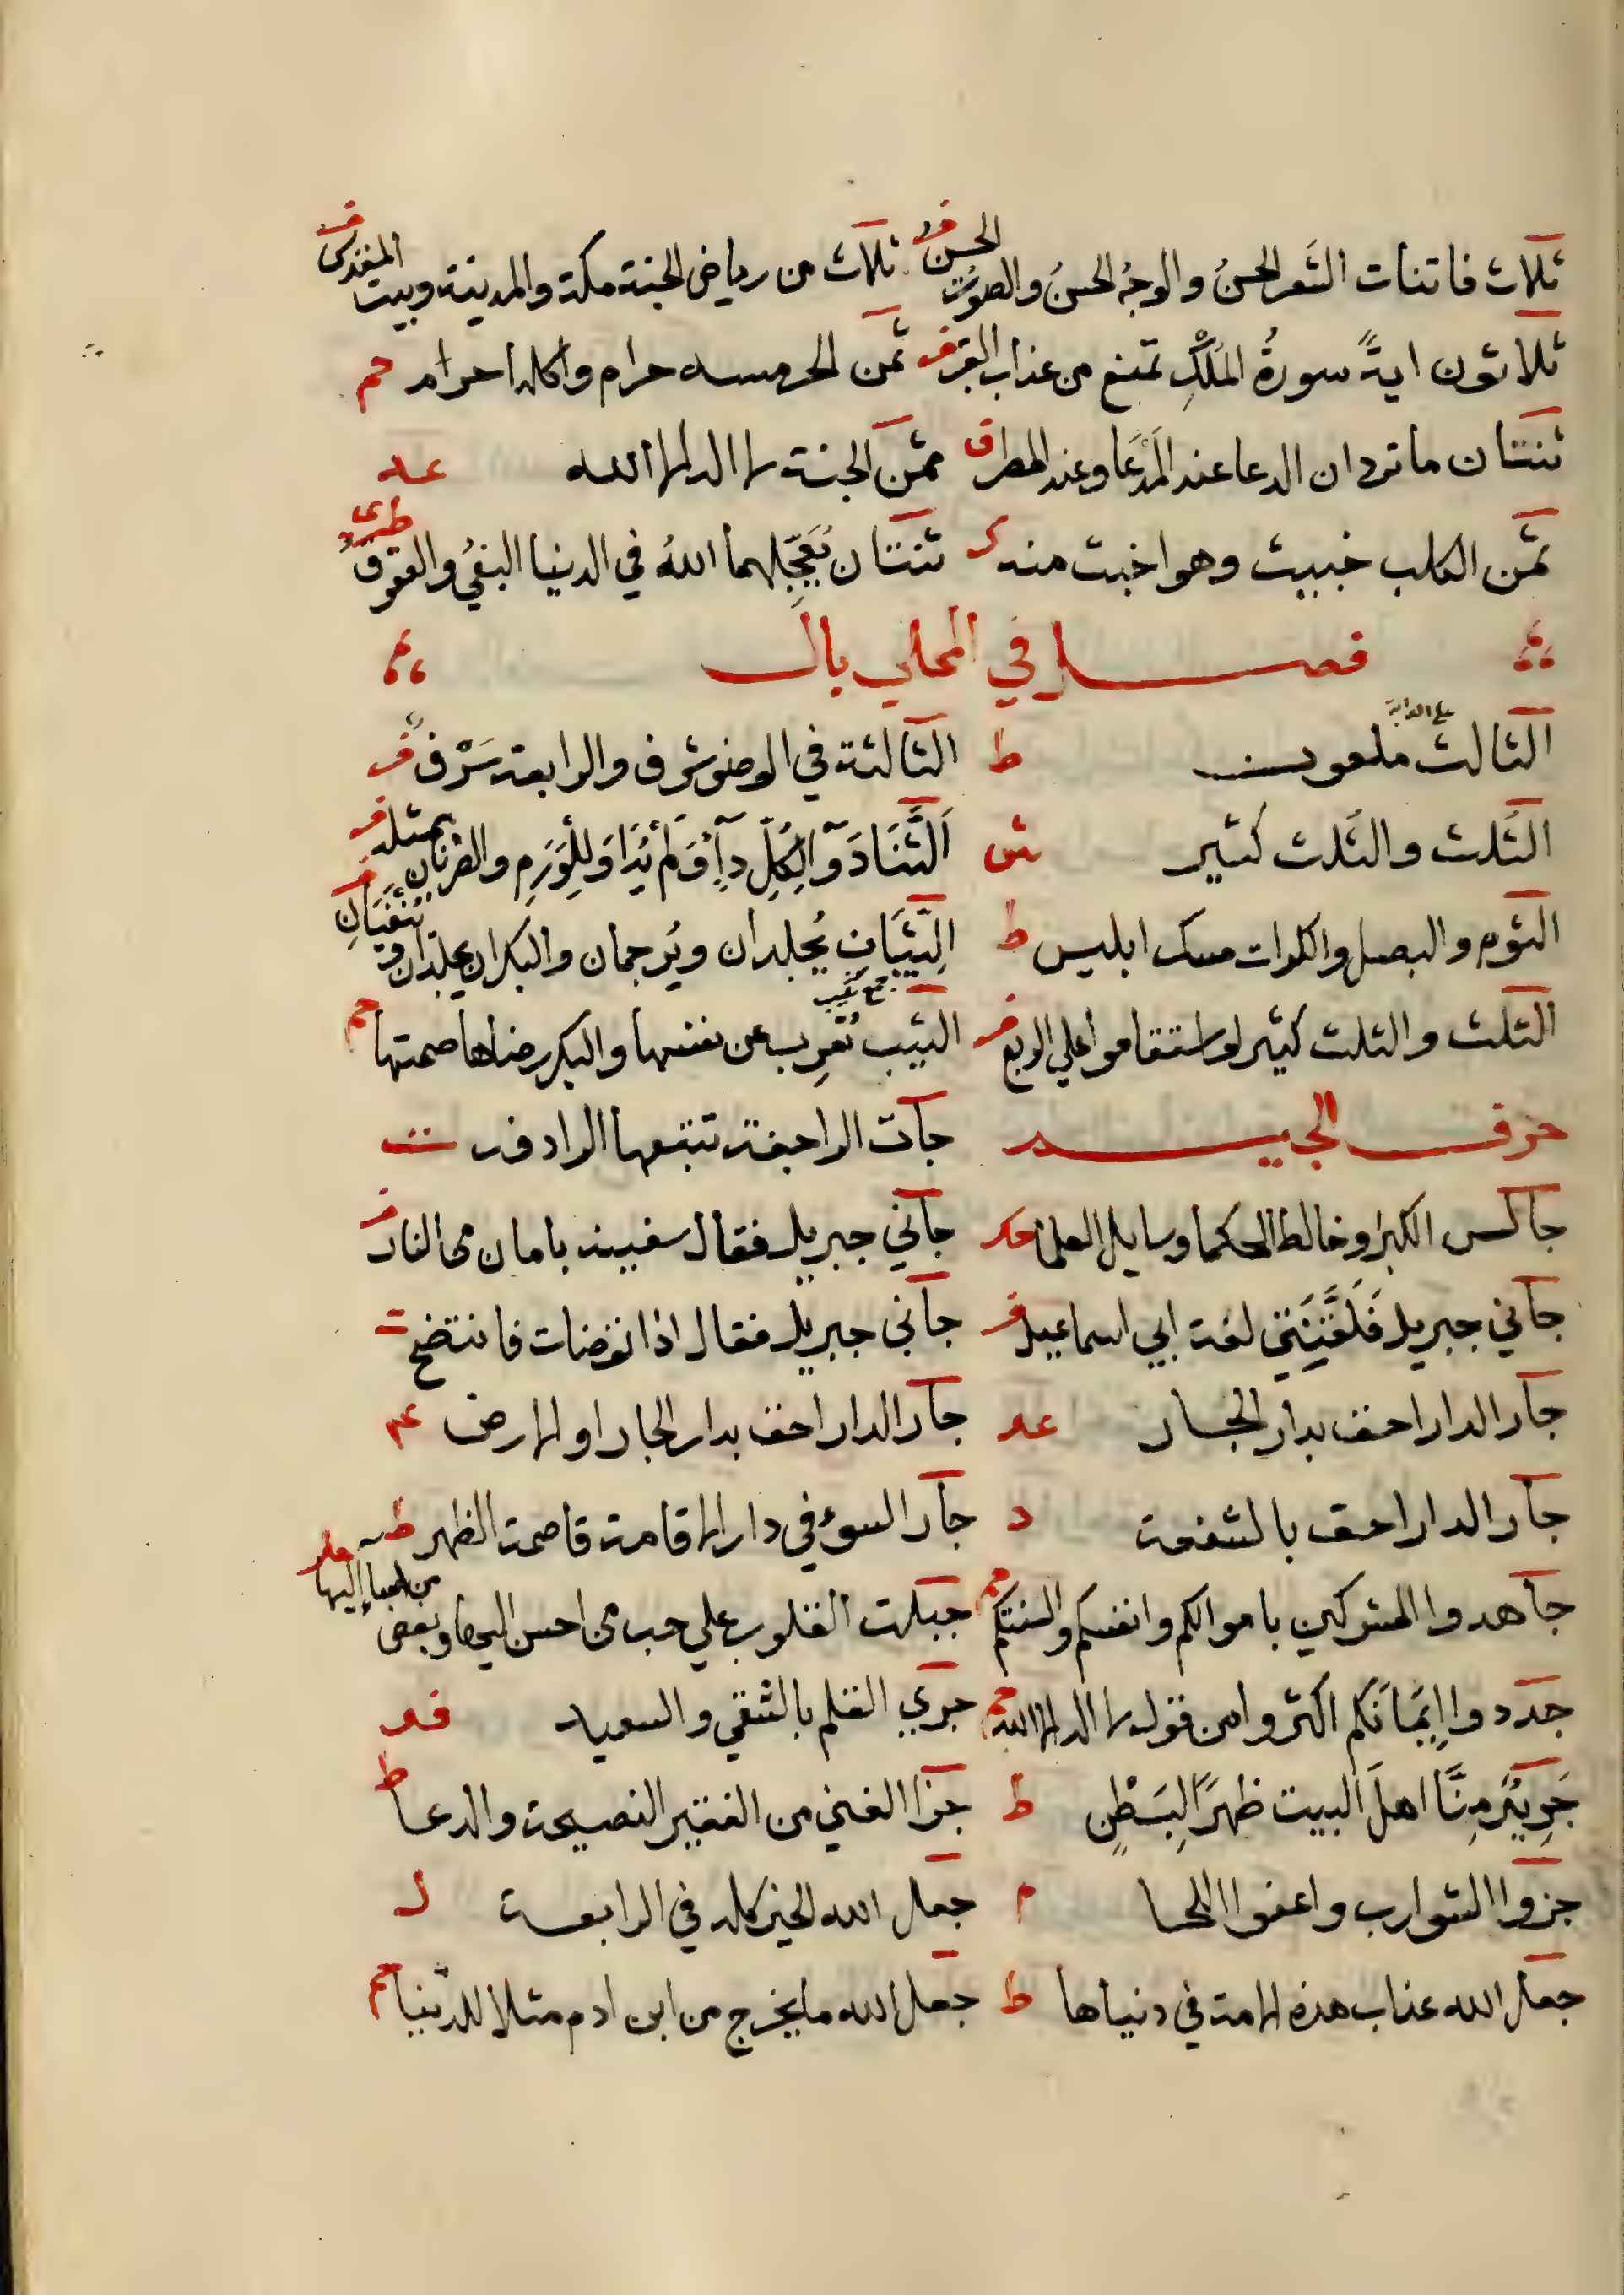 ثلاث فاتنات الشَعر الحسنُ والوجهُ الحسنُ والصَوتُ الحسن فر ثلاث من رياض الجنة مكة والمدينة وبيت المقدس ف
ثلاثون ايةً سورةُ المَلكِ تمنع من عذاب القبر ف ثمن الخمر حرام واكلها حرام حم
ثنتان ما تردان الدعا عند المدعا وعند المطر ق ثمن الجنة لا اله الا الله عد
ثمن الكلب خبيث وهو اخبث منه ك ثنتان يُعَجِّلهما اللهُ في الدنيا البغيُ والعقوق طبري
فصل في المحلي بال
الثالث ملعون على الدابة ط الثالثة في الوضو شرف والرابعة سَرَف ف
الثلث والثلث كثير ش
الثوم والبصل والكراث مسك ابليس ط الثيبان يُجلدان ويُرجمان والبكران يجلدان ويُنفَيَانِ ف
الثلث والثلث كثير لو استقاموا علي الربع ف الثيب تُعرِب عن نفسها والبكر رضاها صمتها حم
جمع ثيب
حرف الجيم جآت الراجفة تتبعها الرادفة ت
جالس الكبرا وخالط الحكما وسايل العلما حد جآني جبريل فقال
جآني جبريل فَلَقَّنَنِي لغة ابي اسماعيل ف جآني جبريل فقال اذا توضات فانتضح ت
جار الدار احق بدار الجار عد جار الدار احق بدار الجار او الارض عم
جار الدار احق بالشفعة د جار السوء في دار الاقامة قاصمة الظهر ط
جاهدوا المشركين باموالكم وانفسكم والسنتكم حم جبلت القلوب علي حب من احسن اليها وبغض من اسا إليها حل
جددوا اِيمَانَكم اكثروا من قول لا اله الا الله حم جري القلم بالشقي والسعيد فد
جَرِيْرٌ مِنَّا اهلَ البيت ظهرًا لِبَطْنٍ ط جزا الغني من الفقير النصيحة والدعا ط
جزوا الشوارب واعفوا اللحا م جعل الله الخير كله في الرابعة ل
جعل الله عذاب هذه الامة في دنياها ط جعل الله ما يخرج من ابن ادم مثلا للدنيا حم